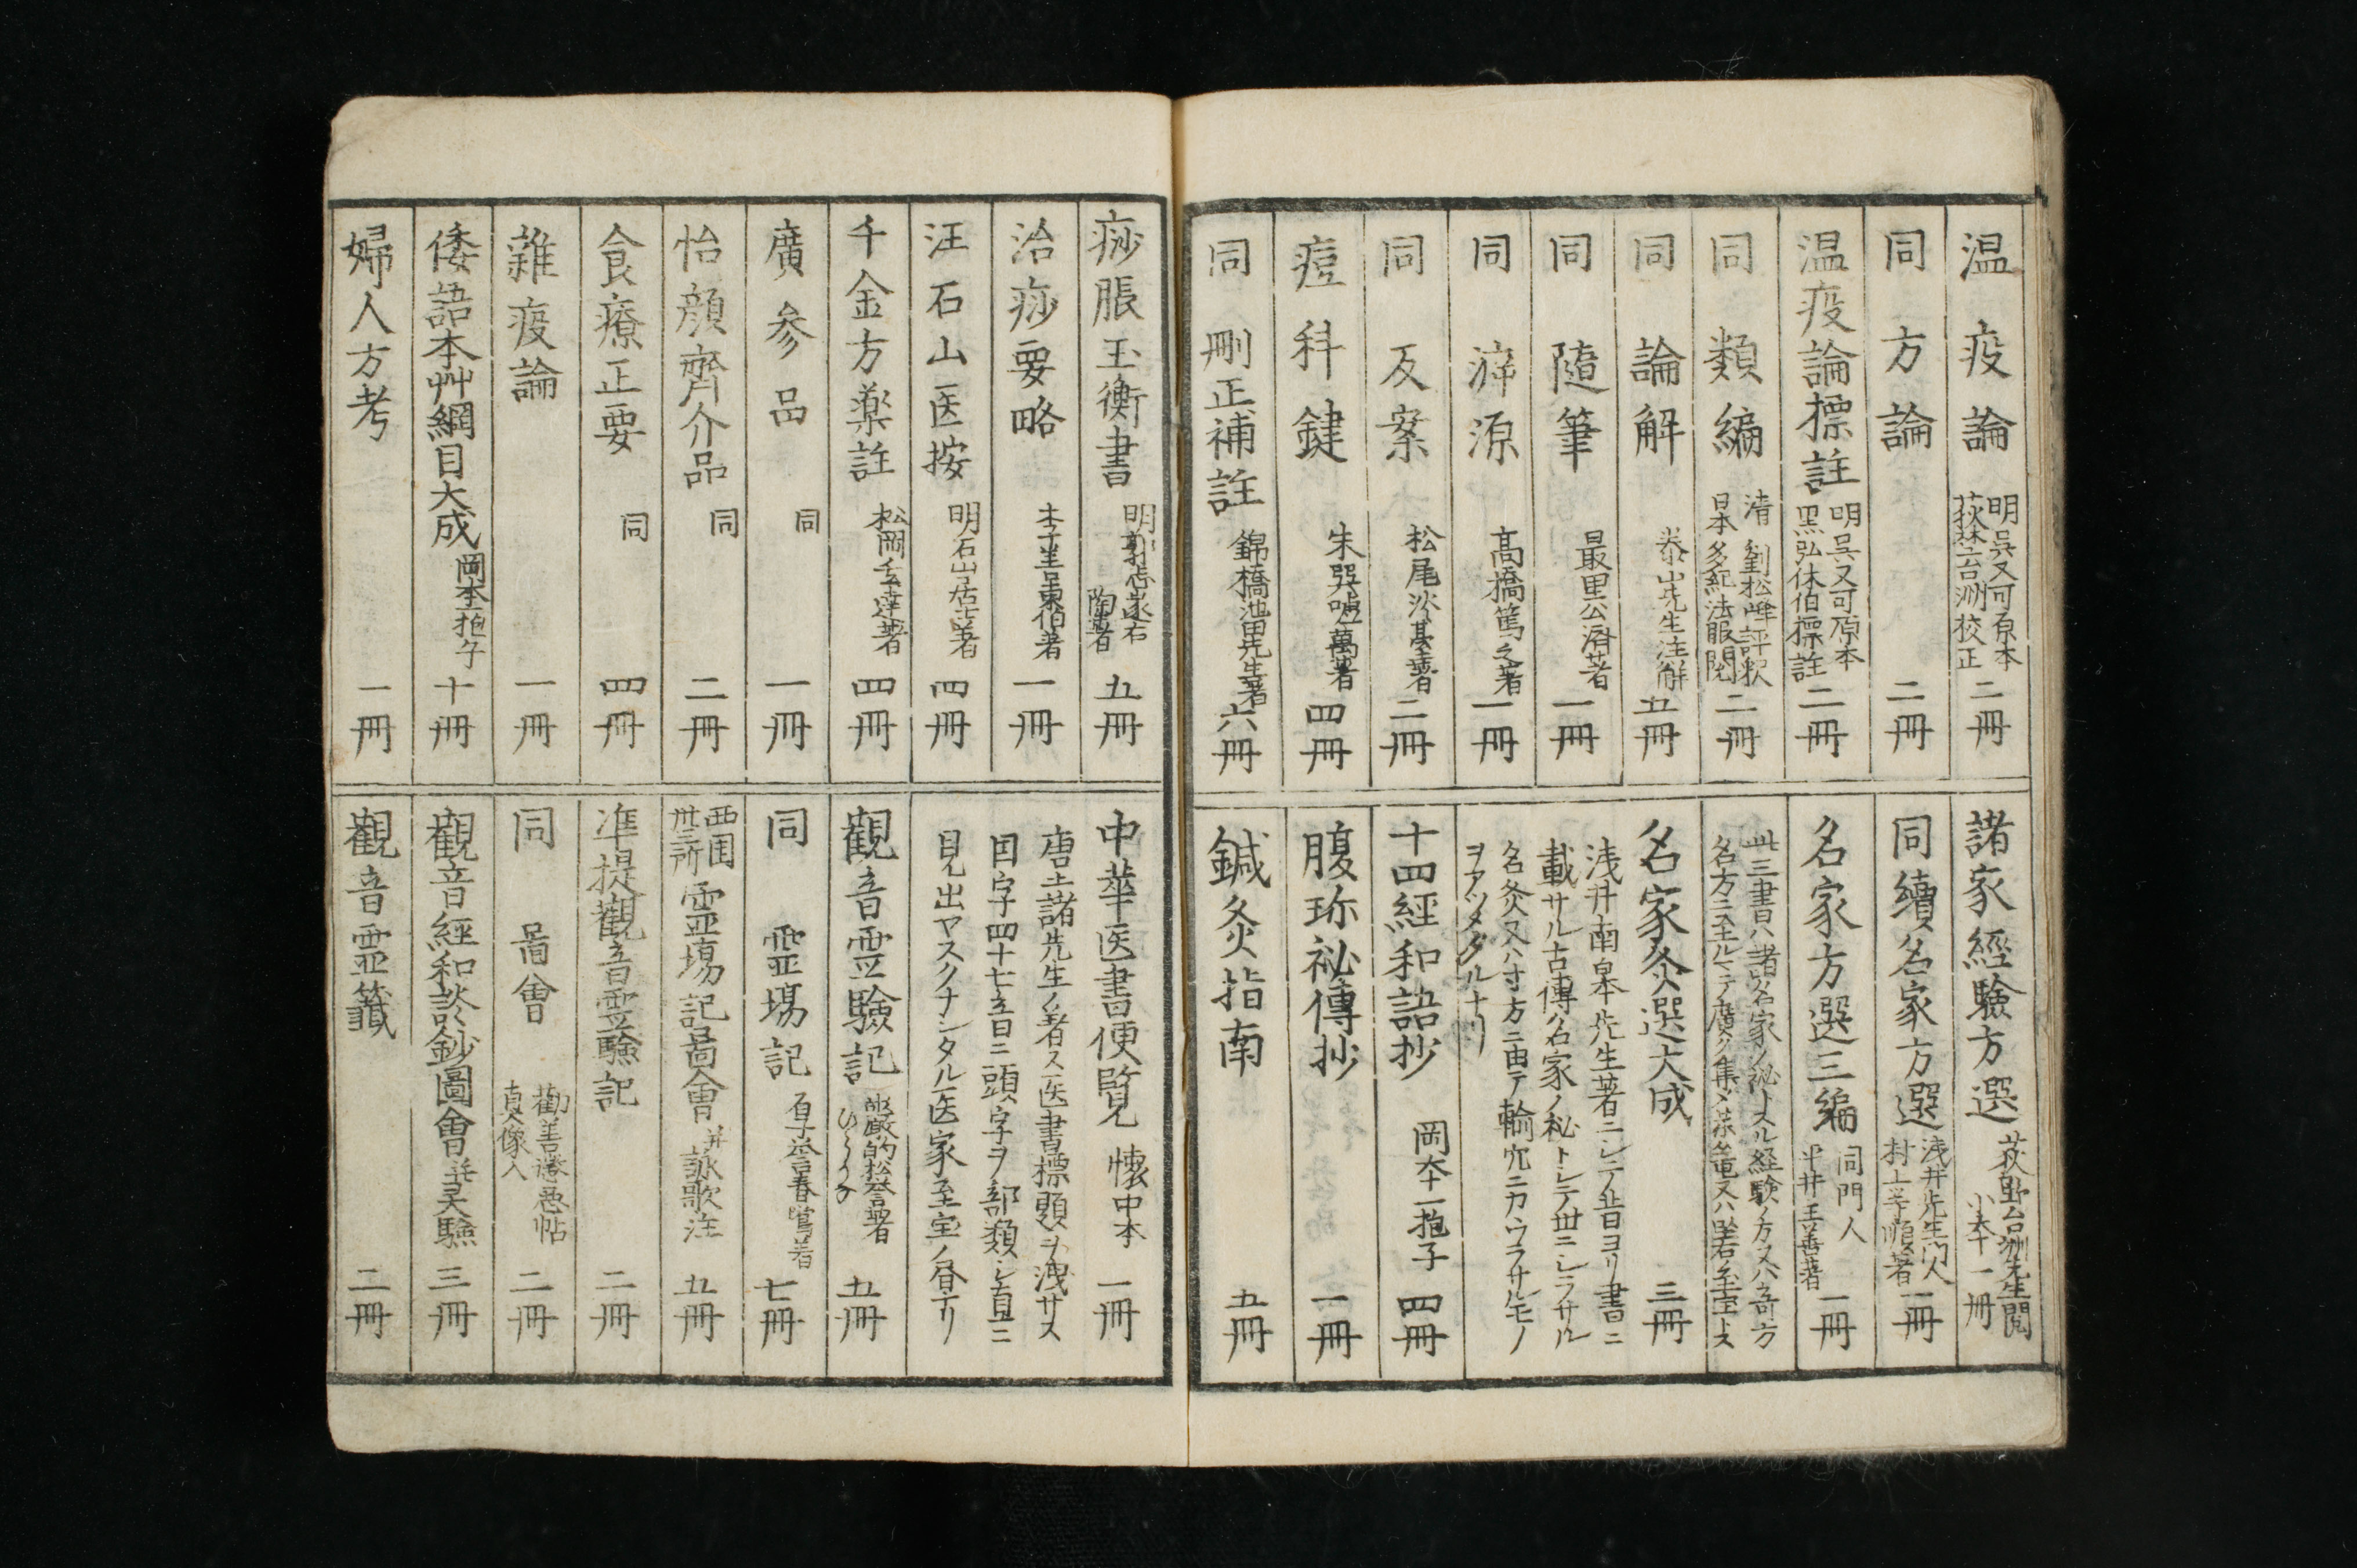 温疫論 明 呉又可原本 荻埜台洲校正 二冊
同方論 二冊
温疫論標註 明 呉又可原本 黒弘休伯標註 二冊
同類編 清 劉松峰評釈 日本 多紀法服閲 二冊
同論解 泰山先生注解 五冊
同隨筆 最里公濟著 一冊
同游源 髙橋篤之著 一冊
同反案 松尾 著 二冊
痘科鍵 朱巽 萬著 四冊
同刪正補註 錦橋池田先生著 六冊
諸家經驗方選 荻埜台洲先生閲 小本一冊
同續名家方選 浅井先生門人 村上等順著 一冊
名家方選三編 同門人 平井主善著 一冊
此三書ハ諸名家ノ祕トスル経験ノ方又ハ奇方
名方ニ至ルマテ廣ク集メ
名家灸選大成 三冊
浅井南皐先生著ニシテ昔ヨリ書ニ
載サル古傳名家ノ秘トシテ世ニシラサル
名灸又ハ寸方ニ由テ輸穴ニカヽワラサルモノ
ヲアツメタル十リ
十四経和語抄 岡本一抱子 四冊
腹㐱祕傳抄 一冊
鍼灸指南 五冊
痧脹玉衡書 明 郭志邃右陶著 五冊
治痧要略 一冊
汪石山医按 明石山居士著 四冊
千金方薬註 松岡玄達著 四冊
廣参品 同 一冊
怡顔齊介品 同 二冊
食療正要 同 四冊
雜疫論 一冊
倭語本艸綱目大成 岡本一抱子 十冊
婦人方考 一冊
中華医書便覧 懐中本 一冊
唐土諸先生ノ著ス医書標題ヲ洩サス
国字四十七言ニ頭字ヲ部類シ直ニ
見出ヤスクナシタル医家至宝ノ昼ナリ
觀音霊驗記 厳的松誉著 ひらかな 五冊
同霊場記 厚誉春鴬著 七冊
西国卅三所霊場記啚會 并詠歌注 五冊
準提觀音霊驗記 二冊
同啚會 勸善懲悪帖 真像入 二冊
觀音經和談鈔圖會 并灵驗 三冊
觀音霊籖 二冊